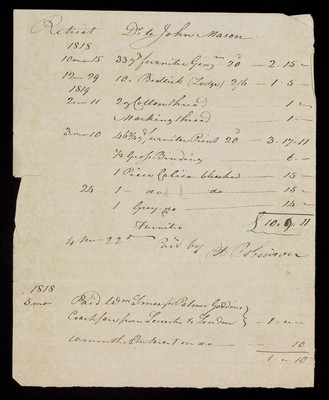 Retreat Dr to John Mason
1818
10mo 15 33 yds furniture 20d – 2 . 15 –
12mo 29 10 – Bedtick (Lodge) 2/6 – 1 . 5 –
1819
2mo 11 2 oz Cotton thread – 1 –
Marking thread – 1 –
3mo 10 46 3/4 yd furniture Print 20d – 3 . 17 . 11
1/2 Gross Binding – 6 –
1 Piece Calico bleached – 15 –
24 1 – do do – 15 –
1 Grey do – 14 –
Furnitre £10 . 9 . 11
4 mo 22d Paid by Robinson
1818
5mo Paid Wm for Palmer
Coach fare from Leicester to London – 1 – " –
10 months Interest on do – 10
1 – " – 10